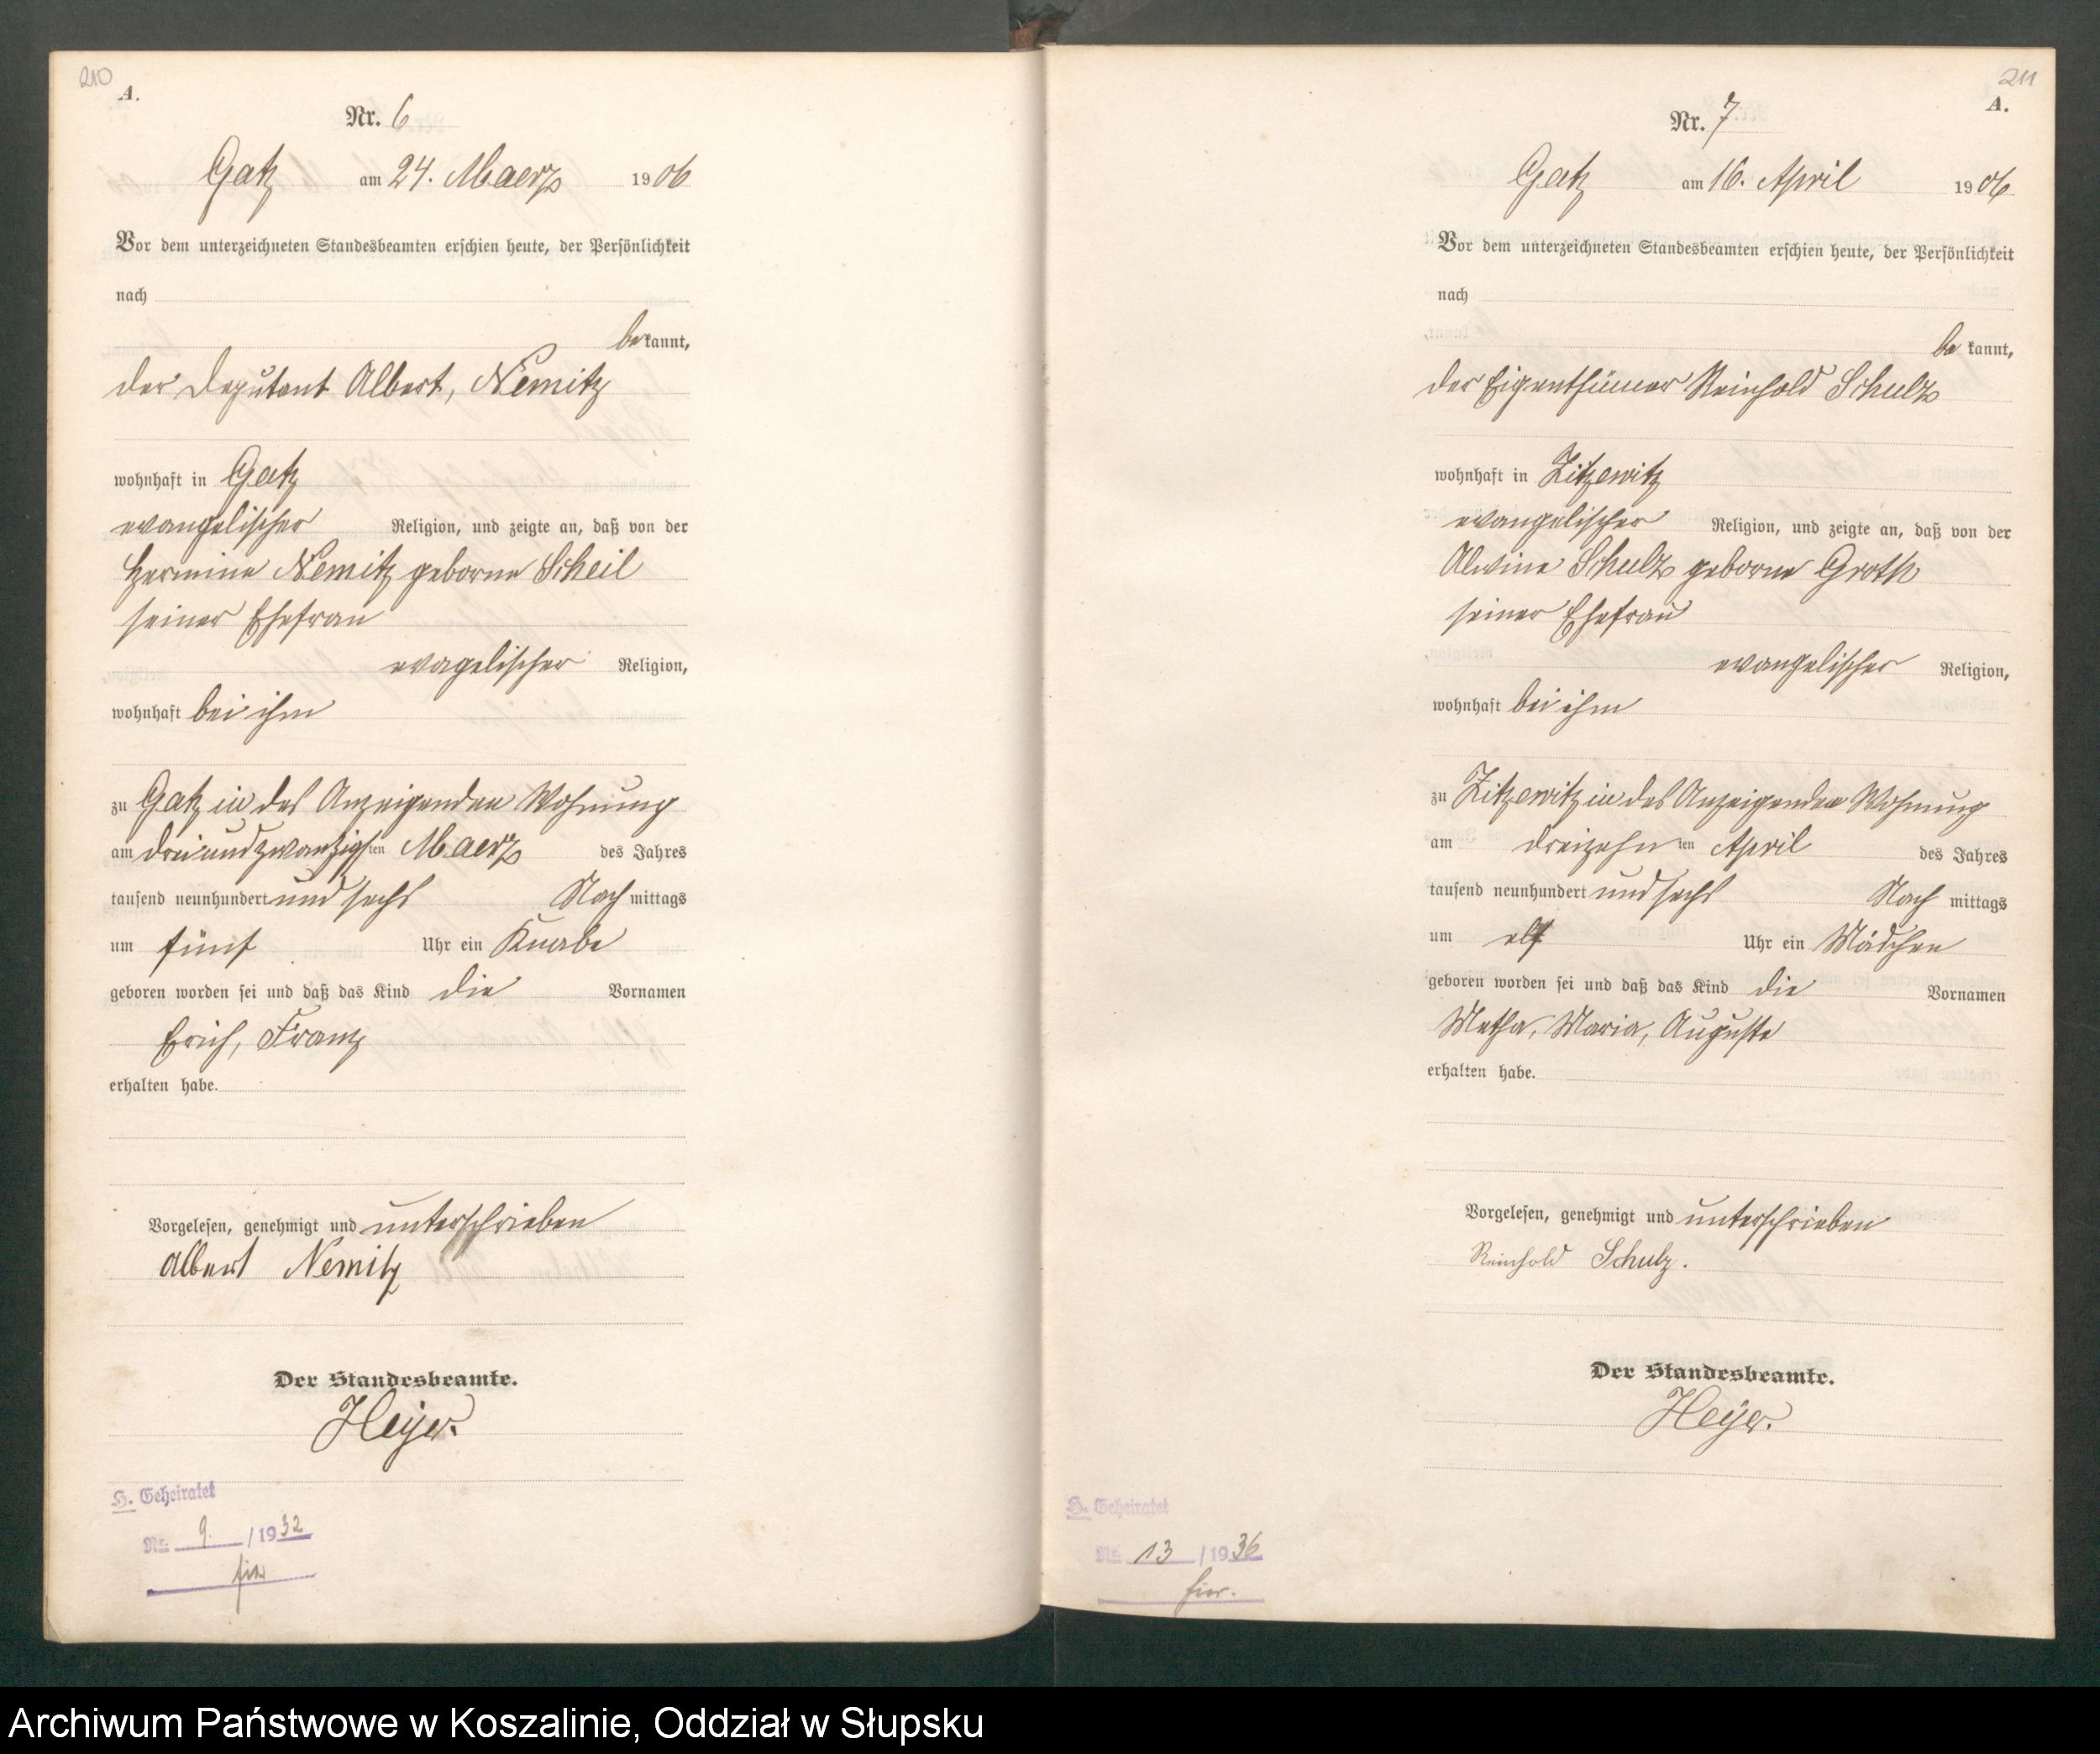 210
A.
Nr. 6
Gatz am 24. Maerz 1906
Vor dem unterzeichneten Standesbeamten erschien heute, der Persönlichkeit
nach
bekannt,
der Deputant Albert, Nemitz
wohnhaft in Gatz
evangelischer Religion, und zeigte an, daß von der
Hermine Nemitz geborne Scheil
seiner Ehefrau
evagelischer Religion,
wohnhaft bei ihm
zu Gatz in des Anzeigenden Wohnung
am dreiundzwanzigsten Maerz des Jahres
tausend neunhundert und sechs Nachmittags
um fünf Uhr ein Knabe
geboren worden sei und daß das Kind die Vornamen
Erich, Franz
erhalten habe.
Vorgelesen, genehmigt und unterschrieben
Albert Nemitz
Der Standesbeamte.
Heyer.
H. Geheiratet
Nr. 9. /1932
211
A.
Nr. 7
Gatz am 16. April 1906
Vor dem unterzeichneten Standesbeamten erschien heute, der Persönlichkeit
nach
bekannt,
der Eigenthümer Reinhold Schulz
wohnhaft in Zitzewitz
evangelischer Religion, und zeigte an, daß von der
Alwine Schulz geborne Groth
seiner Ehefrau
evangelischer Religion,
wohnhaft bei ihm
zu Zitzewitz in des Anzeigenden Wohnung
am dreizehnten April des Jahres
tausend neunhundert und sechs Nachmittags
um elf Uhr ein Mädchen
geboren worden sei und daß das Kind die Vornamen
Metha, Maria, Auguste
erhalten habe.
Vorgelesen, genehmigt und unterschrieben
Reinhold Schulz.
Der Standesbeamte.
Heyer.
H. Geheiratet
Nr. 13 /1936
Archiwum Państwowe w Koszalinie, Oddział w Słupsku